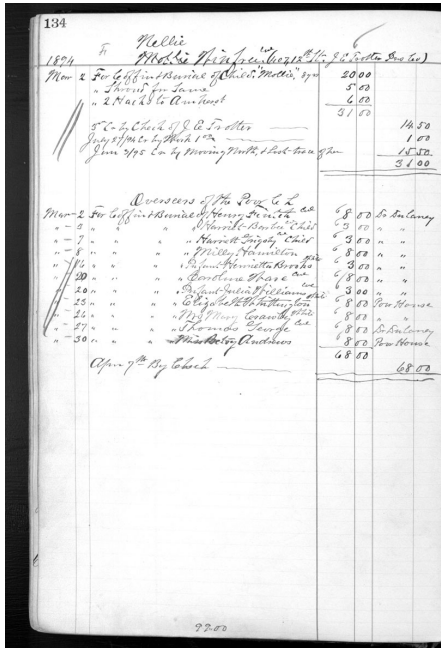 134
Nellie
1894 Mollie Winfree col 1207 12th St. J E Trotter
Mar 2 For Coffin & Burial of Child, "Mollie" 3 yrs 20 00
" Shroud for Same 5 00
" 2 Hacks to Amherst 6 00
31 00
5 Cr by Check of J E Trotter 14 50
July 27/94 Cr by Work 1 00
June 3/95 Cr by Moving North, & lost trace of her 15 50
31 00
Overseers of the Poor C L
Mar - 2 For Coffin & Burial of Henry Smith col 8 00 Dr Dulaney
" - 5 " " " " Harriet child 3 00 " "
" - 7 " " " " Harriett Grigsby child 3 00 " "
" - 8 " " " " Milly Hamilton 8 00 " "
" " " " " Infant Henrietta Brooks 3 00 " "
" 20 " " " " Caroline Ware col 8 00 " "
" 20 " " " " Infant Julia Williams col 3 00 " "
" - 25 " " " " Elizabeth Whittington white 8 00 Poor House
" - 26 " " " " Mrs Mary Crawley white 8 00 " "
" - 27 " " " " Thomas George col 8 00 Dr Dulaney
" - 30 " " " " Miss Betsy Andrews 8 00 Poor House
68 00
Apr 7th By Check 68 00
99 00